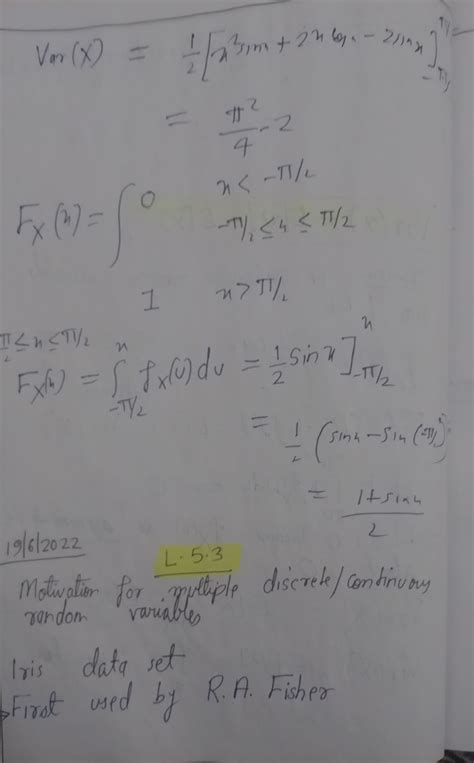 Var(X) = 1/2 [x² sinx + 2x cosx - 2 sinx]
= π²/4 - 2
F_X(x) = ∫ 0 x < -π/2
-π/2 ≤ x ≤ π/2
1 x > π/2
π/2 ≤ x ≤ π/2
F_X(x) = ∫_{-π/2}^{x} f_X(u) du = 1/2 sin x ]_{-π/2}^{x}
= 1/2 (sinx - sin(-π/2)
= 1 + sinx / 2
19/6/2022
L.5.3
Motivation for multiple discrete/continuous
random variables
Iris data set
First used by R.A. Fisher